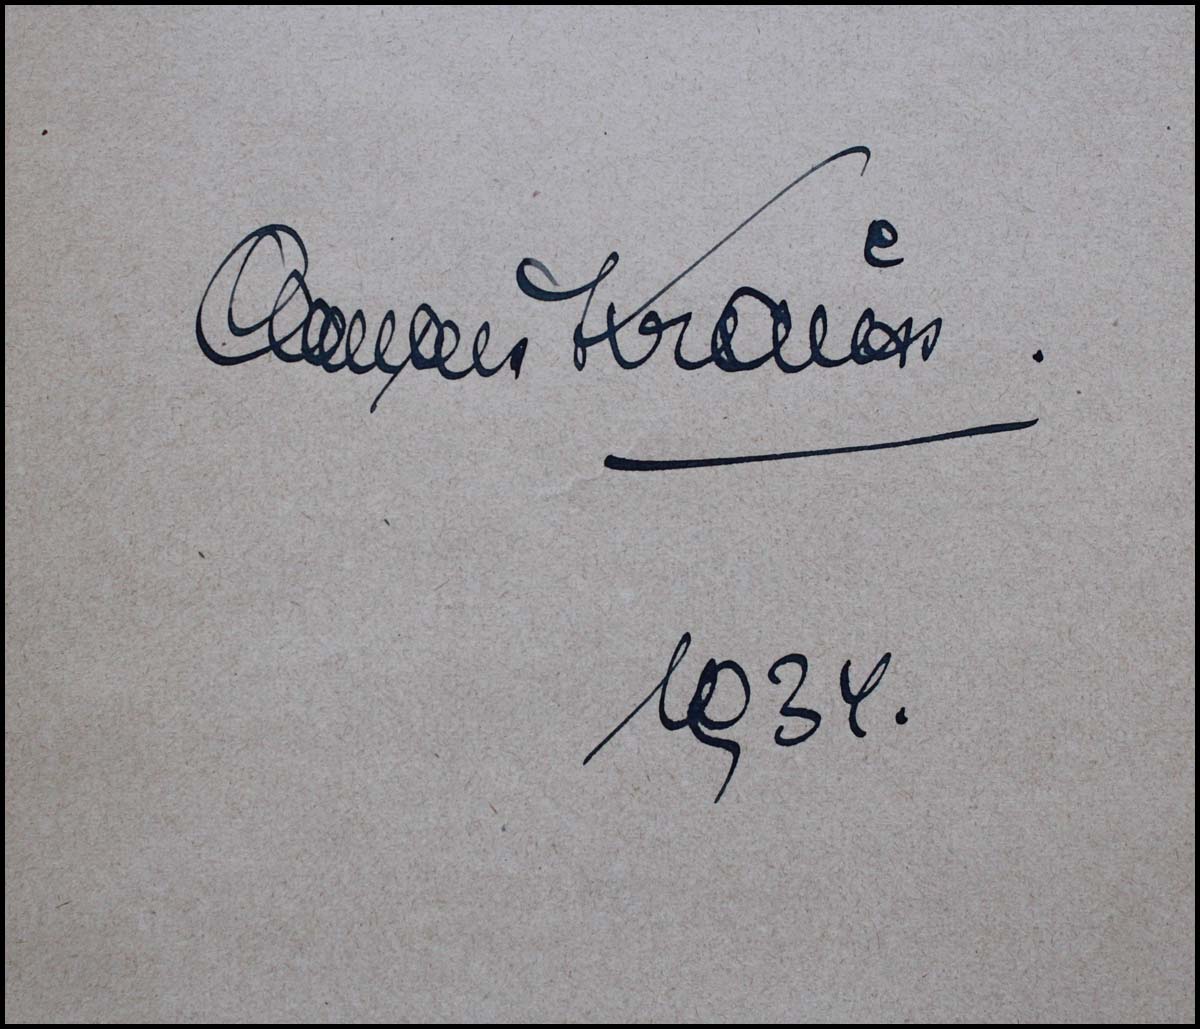 Clemens Krauss.
1934.